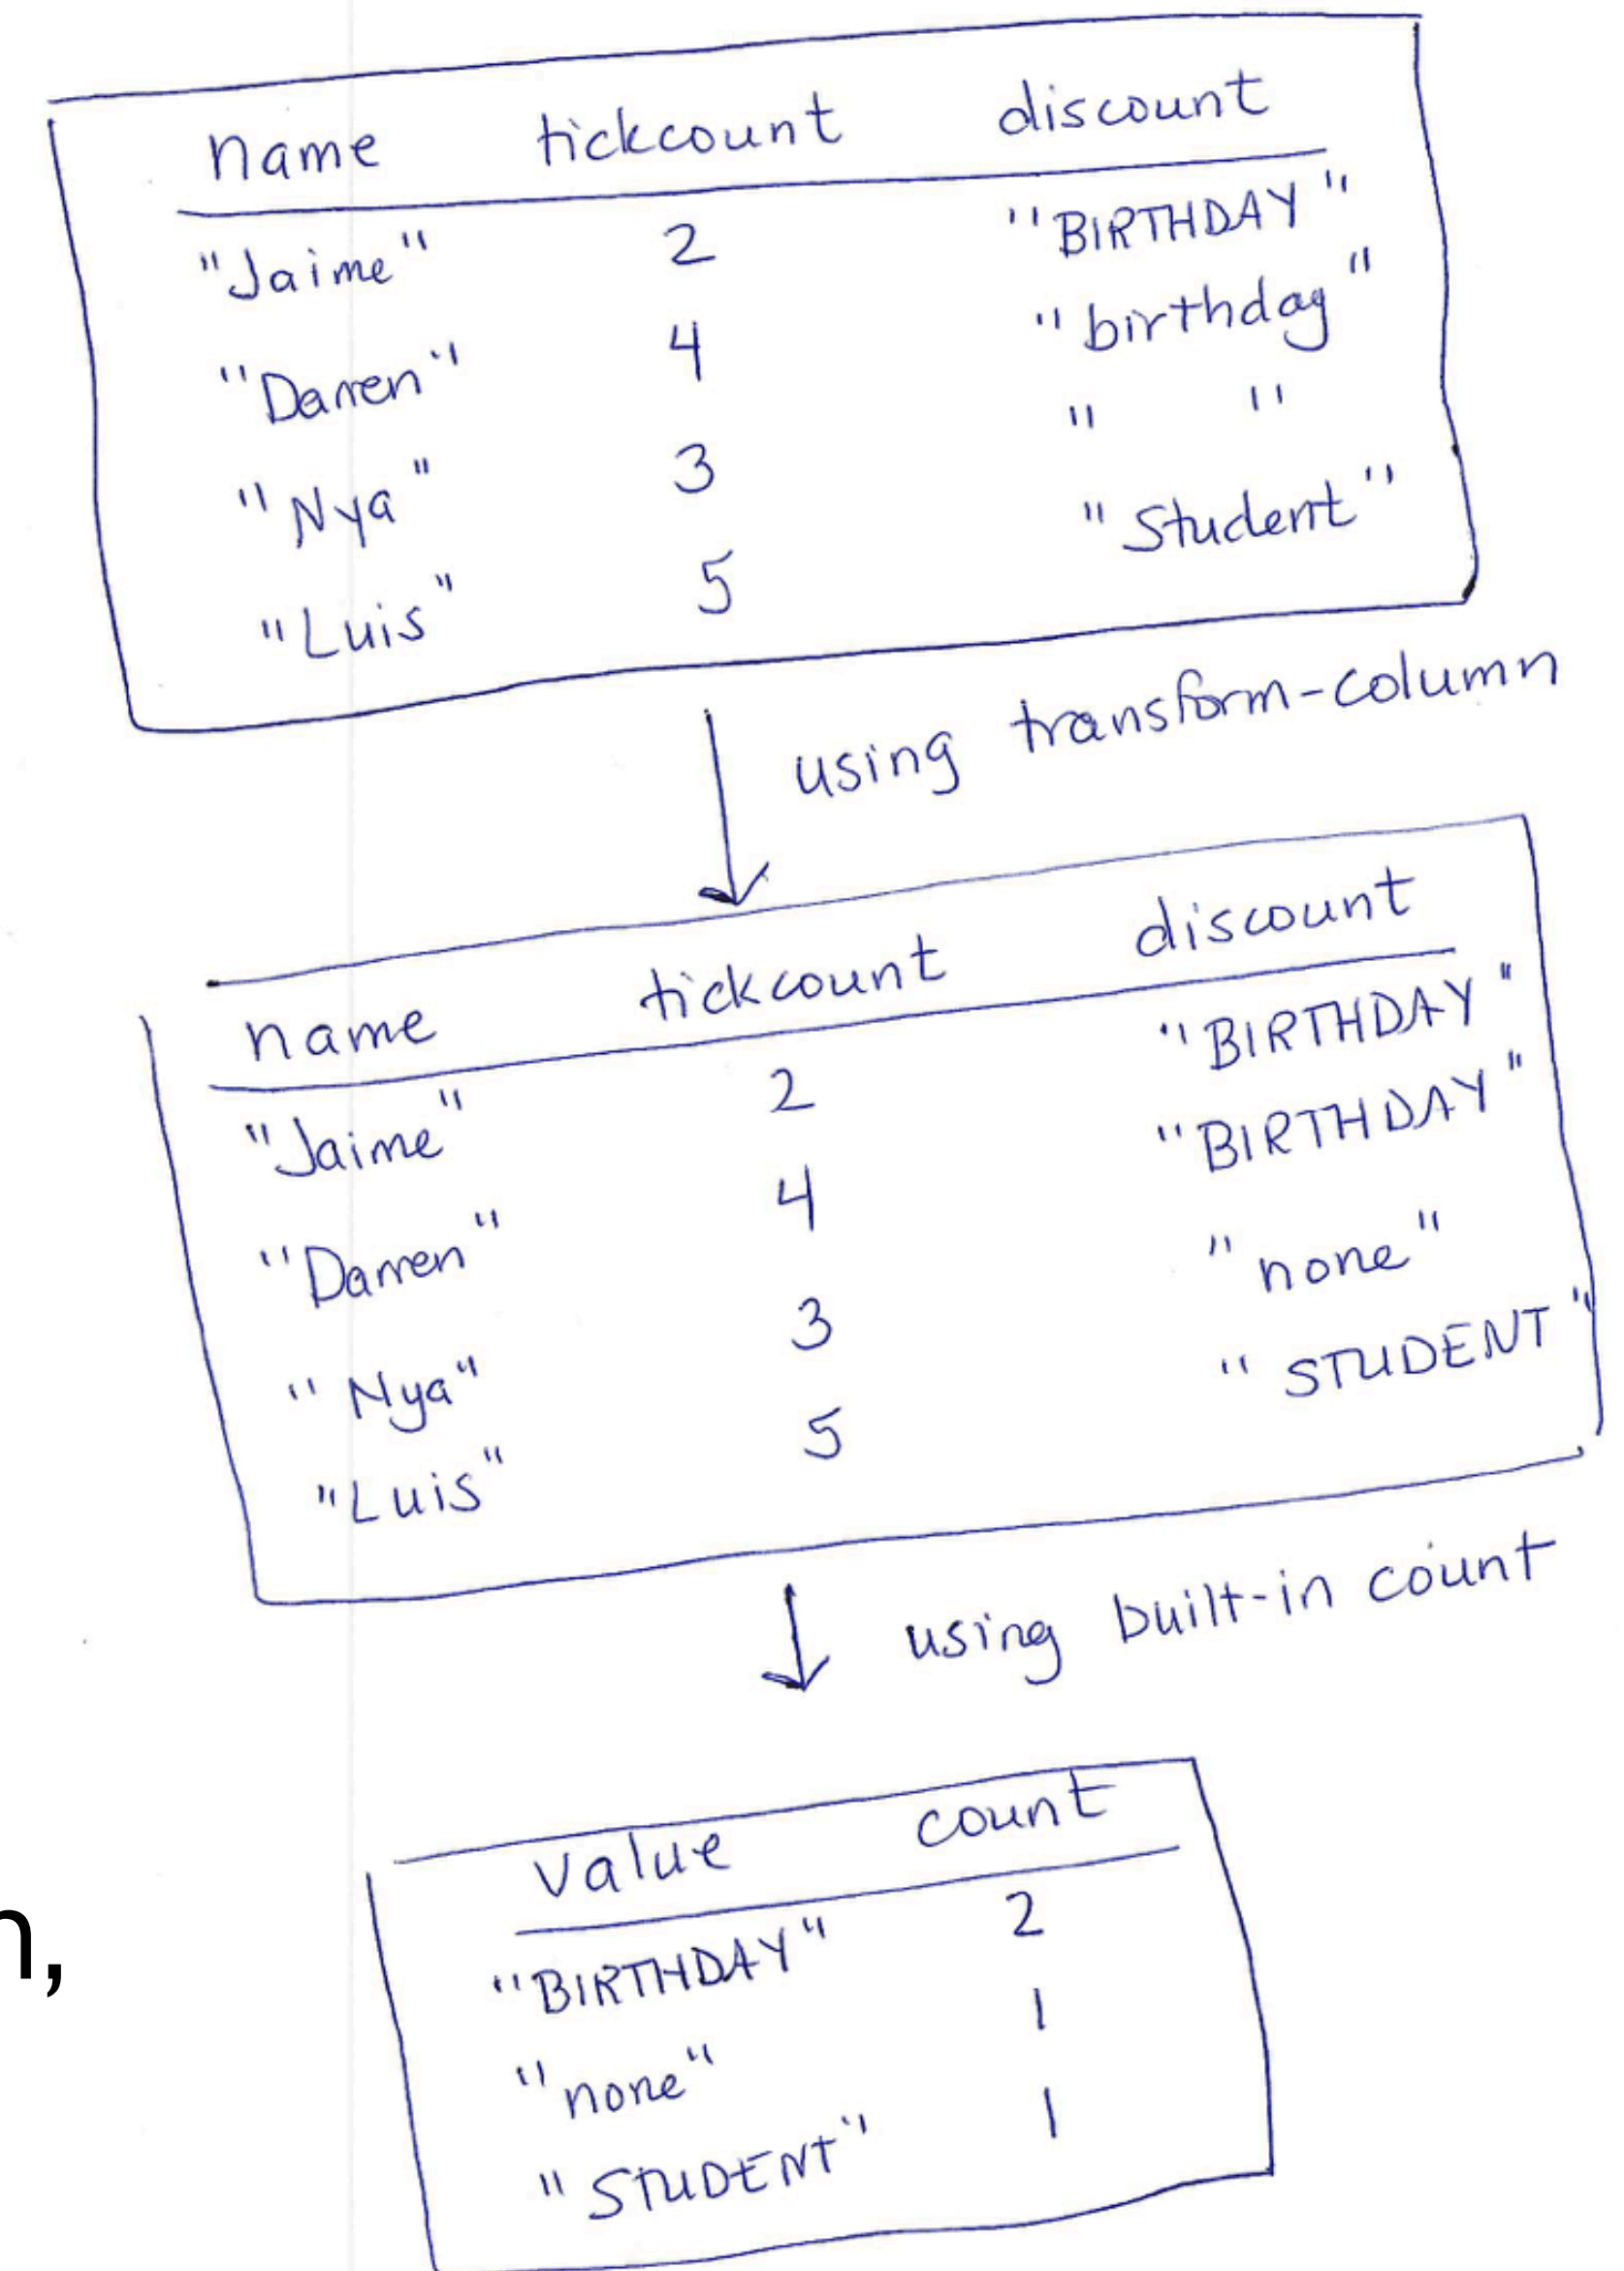 name tickcount discount
"Jaime" 2 "BIRTHDAY"
"Darren" 4 "birthday"
"Nya" 3 " "
"Luis" 5 "Student"
using transform-column
name tickcount discount
"Jaime" 2 "BIRTHDAY"
"Darren" 4 "BIRTHDAY"
"Nya" 3 "none"
"Luis" 5 "STUDENT"
using built-in count
value count
"BIRTHDAY" 2
n,
"none" 1
"STUDENT" 1